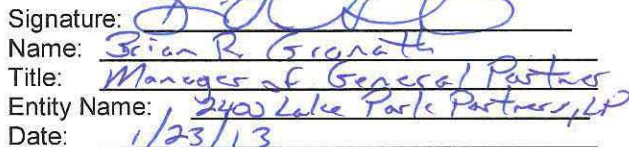 Signature:
Name: Brian R Granath
Title: Manager of General Partner
Entity Name: 2400 Lake Park Partners, LP
Date: 1/23/13